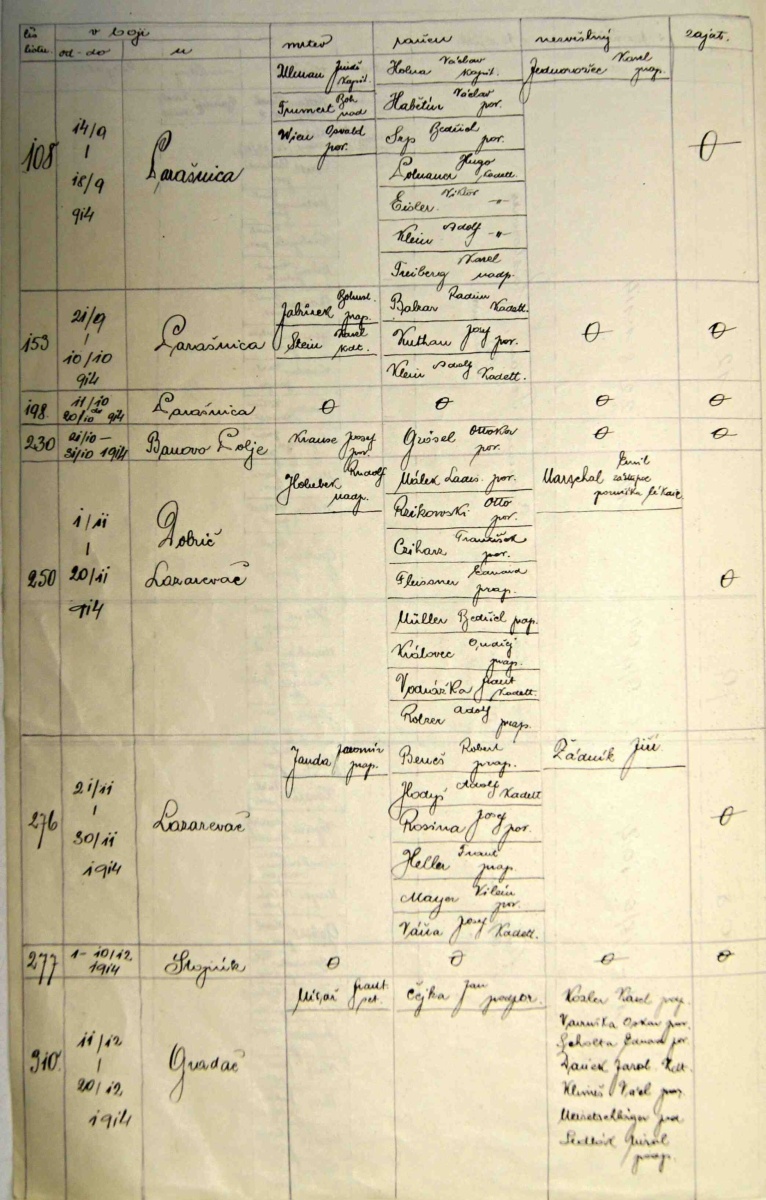 čís listu. v boji mrtev raněn nezvěstný zajat.
od-do u
108 14/9 - 18/9 914 Parašnica
Ulman Jindř kapit.
Trumert Boh nad
Wien Osvald por.
Holna Václav kapit.
Habětín Václav por.
Srp Bedřich por.
Hugo Kadett.
Eisler Viktor -"-
Klein Adolf -"-
Freiberg Karel nadp.
Jednorožec Karel prap.
0
153 21/9 - 10/10 914 Parašnica
Jabůrek Bohusl. prap.
Stein Karel Kdt.
Balcar Radim Kadett.
Kuthan Josef por.
Klein Adolf Kadett.
0 0
198 11/10 do 20/10 914 Parašnica 0 0 0 0
230 21/10 - 31/10 1914 Banovo Polje
Krause Josef por.
Grösel Ottokar por.
0 0
250 1/11 - 20/11 914 Dobrič
Lazarevač
Holubek Rudolf nadp.
Málek Ladis. por.
Reikowski Otto por.
Cziharz František por.
Fleissner Eduard prap.
Müller Bedřich prap.
Královec Ondřej prap.
Vodnářka frant Kadett.
Rotzer Adolf prap.
Marschal Emil zástupce lékaře
0
276 21/11 - 30/11 1914 Lazarevač
Janda Jaromír prap.
Beneš Robert prap.
Hodyš Adolf Kadett
Rosina Josef por.
Heller Frant prap.
Mayer Vilém por.
Váňa Josef Kadett.
Žádník Jiří.
0
277 1-10/12 1914 Stojnik 0 0 0 0
310. 11/12 - 20/12 1914 Gradač
frant.
Čejka Jan podpor.
Kosler Karel prap.
Vavruška Oskar por.
Scholta Eduard por.
Jarosl. Kdt.
Klimeš Karel prap.
Sedlák prap.